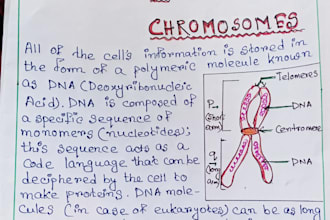 CHROMOSOMES
All of the cell's information is stored in
the form of a polymeric molecule known
as DNA (Deoxyribonucleic
Acid). DNA is composed of
a specific sequence of
monomers (nucleotides);
this sequence acts as a
Code language that can be
deciphered by the cell to
make proteins. DNA mole-
cules (in case of eukaryotes) can be as long
Telomeres
DNA
Centromere
DNA